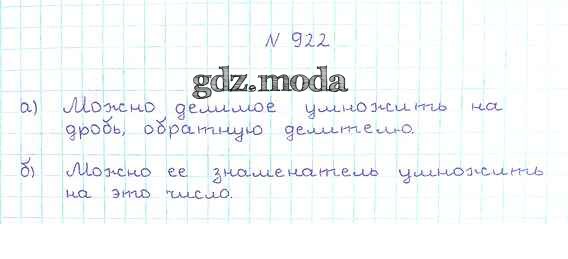 N 922
gdz.moda
а) Можно делимое умножить на
дробь, обратную делителю.
б) Можно ее знаменатель умножить
на это число.